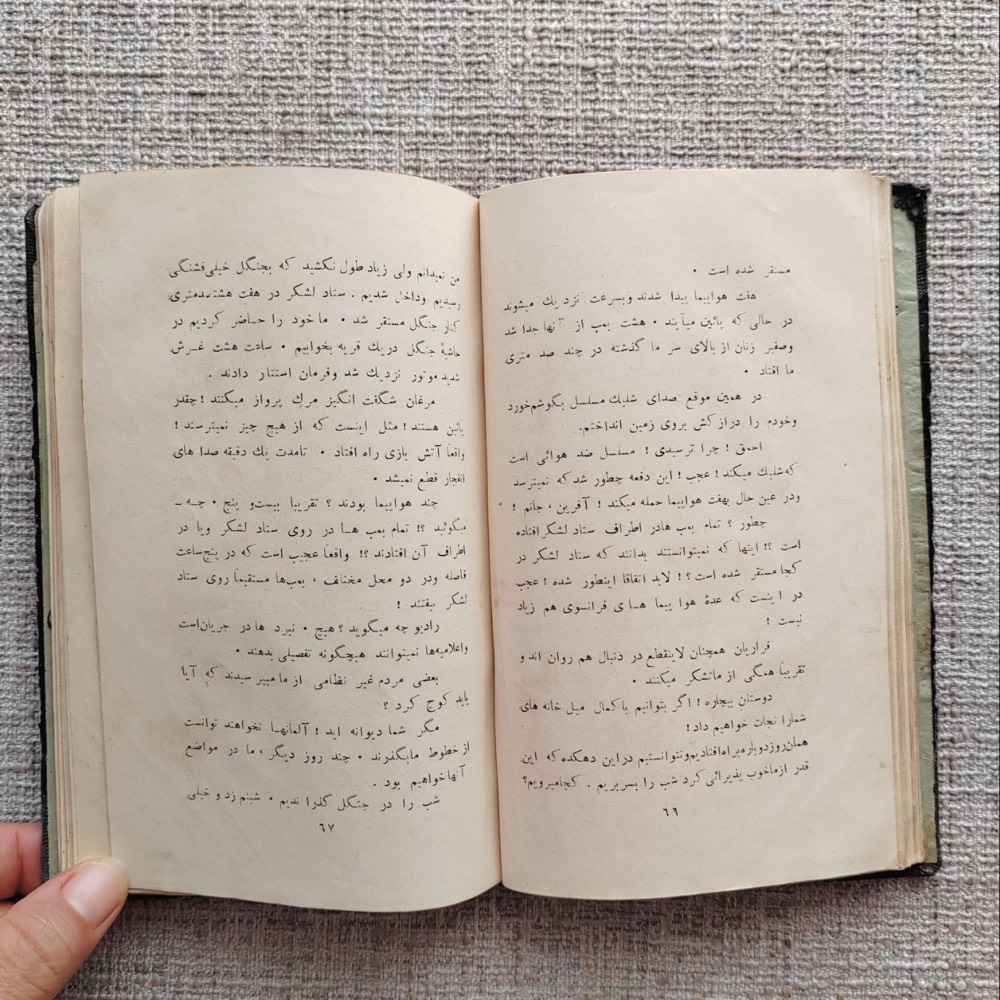 مستقر شده است .
هفت هواپیما پیدا شدند وبسرعت نزدیك میشوند
در حالی که پائین میآیند . هشت بمب از آنها جدا شد
وصفیر زنان از بالای سر ما گذشته در چند صد متری
ما افتاد .
در همین موقع صدای شلیك مسلسل بگوشم خورد
وخودم را دراز کش بروی زمین انداختم.
احمق ! چرا ترسیدی ! مسلسل ضد هوائی است
که شلیك میکند ! عجب ! این دفعه چطور شد که نمیترسد
ودر عین حال بهفت هواپیما حمله میکند ! آفرین ، جانم !
چطور ؟ تمام بمب هادر اطراف ستاد لشکر افتاده
است ؟! اینها که نمیتوانستند بدانند که ستاد لشکر در
کجا مستقر شده است ؟! لابد اتفاقا اینطور شده ! عجب
در اینست که عدهٔ هوا پیما های فرانسوی هم زیاد
نیست !
فراریان همچنان لاینقطع در دنبال هم روان اند و
تقریباً همگی از ماتشکر میکنند .
دوستان بیچاره ! اگر بتوانیم باکمال میل خانه های
شمارا نجات خواهیم داد!
همان روز دوباره براه افتادیم ونتوانستیم در این دهکده که این
قدر ازماخوب پذیرائی کرد شب را بسر بریم . کجا میرویم؟
٦٦
من نمیدانم ولی زیاد طول نکشید که بجنگل خیلی قشنگی
رسیدیم وداخل شدیم . ستاد لشکر در هفت هشتصدمتری
کنار جنگل مستقر شد . ماخود را حاضر کردیم در
حاشیهٔ جنگل دریك قریه بخوابیم . ساعت هشت غرش
شدید موتور نزدیك شد وفرمان استتار دادند .
مرغان شگفت انگیز مرك پرواز میکنند ! چقدر
پائین هستند ! مثل اینست که از هیچ چیز نمیترسند !
واقعاً آتش بازی راه افتاد . تامدت یك دقیقه صدا های
انفجار قطع نمیشد .
چند هواپیما بودند ؟ تقریبا بیست و پنج . چه ـ
میگوئید ؟! تمام بمب هـا در روی ستاد لشکر ویا در
اطراف آن افتادند ؟! واقعاً عجیب است که در پنج ساعت
فاصله ودر دو محل مختلف ، بمب‌ها مستقیماً روی ستاد
لشکر بیفتند !
رادیو چه میگوید ؟ هیچ . نبرد ها در جریان است
واعلامیه‌ها نمیتوانند هیچگونه تفصیلی بدهند .
بعضی مردم غیر نظامی از ما میپرسیدند که آیا
باید کوچ کرد ؟
مگر شما دیوانه اید ! آلمانهـا نخواهند توانست
از خطوط مابگذرند . چند روز دیگر ، ما در مواضع
آنها خواهیم بود .
شب را در جنگل گذرا ندیم . شبنم زد و خیلی
٦٧